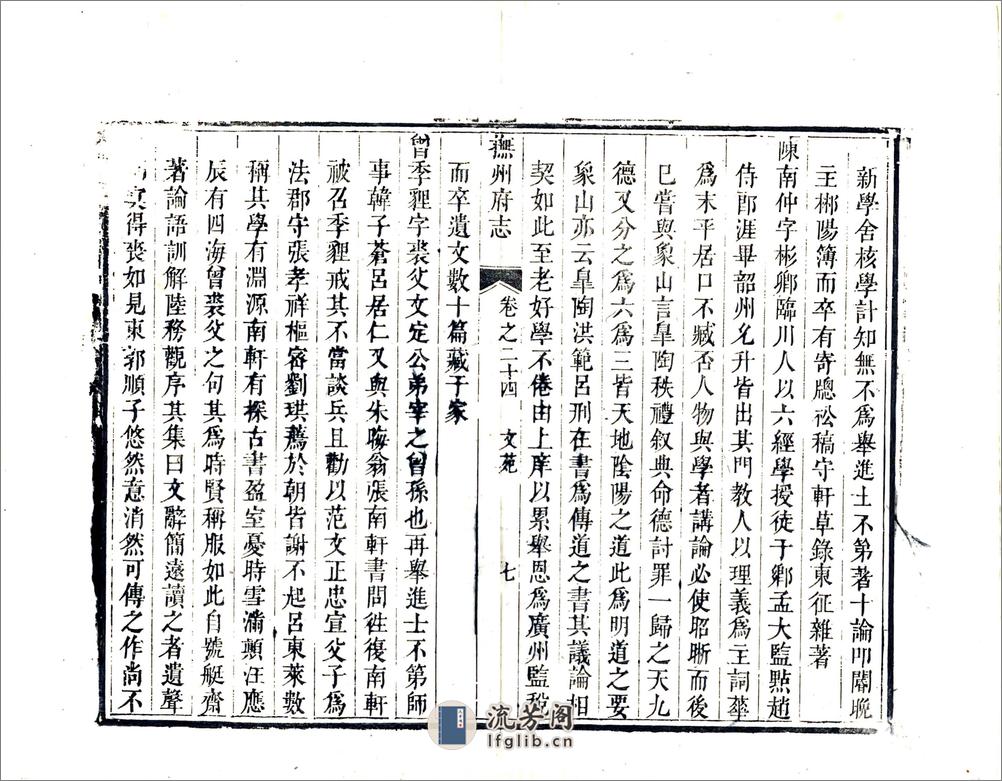 新學舍核學計知無不爲舉進士不第著十論叩閽晚
主郴陽簿而卒有寄牕松稿守軒草錄東征雜著
陳南仲字彬卿臨川人以六經學授徒于鄉孟大監㸃趙
侍郎涯畢韶州允升皆出其門教人以理義爲主詞華
爲末平居口不臧否人物與學者講論必使昭晰而後
已嘗與象山言臯陶秩禮叙典命德討罪一歸之天九
德又分之爲六爲三皆天地陰陽之道此爲明道之要
象山亦云臯陶洪範呂刑在書爲傳道之書其議論相
契如此至老好學不倦由上庠以累舉恩爲廣州監稅
撫州府志 卷之二十四 文苑 七
而卒遺文數十篇藏于家
曾季貍字裘父文定公弟宰之曾孫也再舉進士不第師
事韓子蒼呂居仁又與朱晦翁張南軒書問徃復南軒
被召季貍戒其不當談兵且勸以范文正忠宣父子爲
法郡守張孝祥樞密劉珙薦於朝皆謝不起呂東萊數
稱其學有淵源南軒有探古書盈室憂時雪滿顛汪應
辰有四海曾裘父之句其爲時賢稱服如此自號艇齋
著論語訓解陸務觀序其集曰文辭簡遠讀之者遺聲
利冥得喪如見東郭順子悠然意消然可傳之作尚不
流芳阁
lfglib.cn